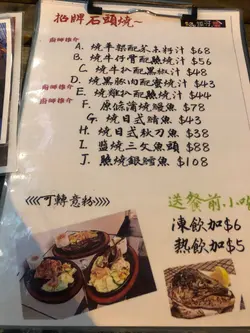 招牌石頭燒~
廚師推介 A. 燒羊架配茶木籽汁 $68
B. 燒牛仔骨配燒汁 $56
C. 燒牛扒配黑椒汁 $48
廚師推介 D. 燒黑豚肉配蜜燒汁 $43
廚師推介 E. 燒雞扒配燒汁 $44
F. 原條蒲燒鰻魚 $78
G. 燒日式鯖魚 $43
H. 燒日式秋刀魚 $38
I. 醬燒三文魚頭 $88
J. 燒銀鱈魚 $108
《《《可轉意粉》》》
送餐前小吃
凍飲加$6
熱飲加$8